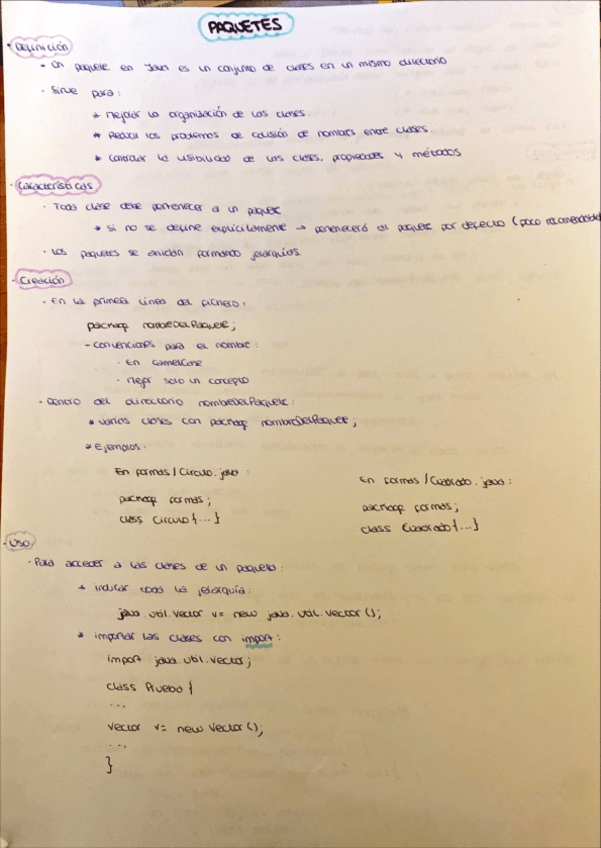 PAQUETES
· Definición
• Un paquete en Java es un conjunto de clases en un mismo directorio
· Sirve para:
* Mejorar la organización de las clases.
* Reducir los problemas de colisión de nombres entre clases.
* Controlar la visibilidad de las clases, propiedades y métodos
· Características
· Toda clase debe pertenecer a un paquete
* Si no se define explícitamente → pertenecerá al paquete por defecto (poco recomendable)
· Los paquetes se anidan formando jerarquías.
· Creación
· En la primera línea del fichero:
package nombreDelPaquete;
- Convenciones para el nombre:
· En CamelCase
· Mejor solo un concepto
· Dentro del directorio nombreDelPaquete:
* Varias clases con package nombreDelPaquete;
* Ejemplos.
En formas/Circulo.java :
package formas;
class Circulo {...}
En formas/Cuadrado.java :
package formas;
class Cuadrado {...}
· Uso
· Para acceder a las clases de un paquete:
* indicar toda la jerarquía.
java.util.Vector v= new java.util.Vector();
* importar las clases con import:
import java.util.Vector;
class Prueba {
...
Vector v= new Vector();
...
}